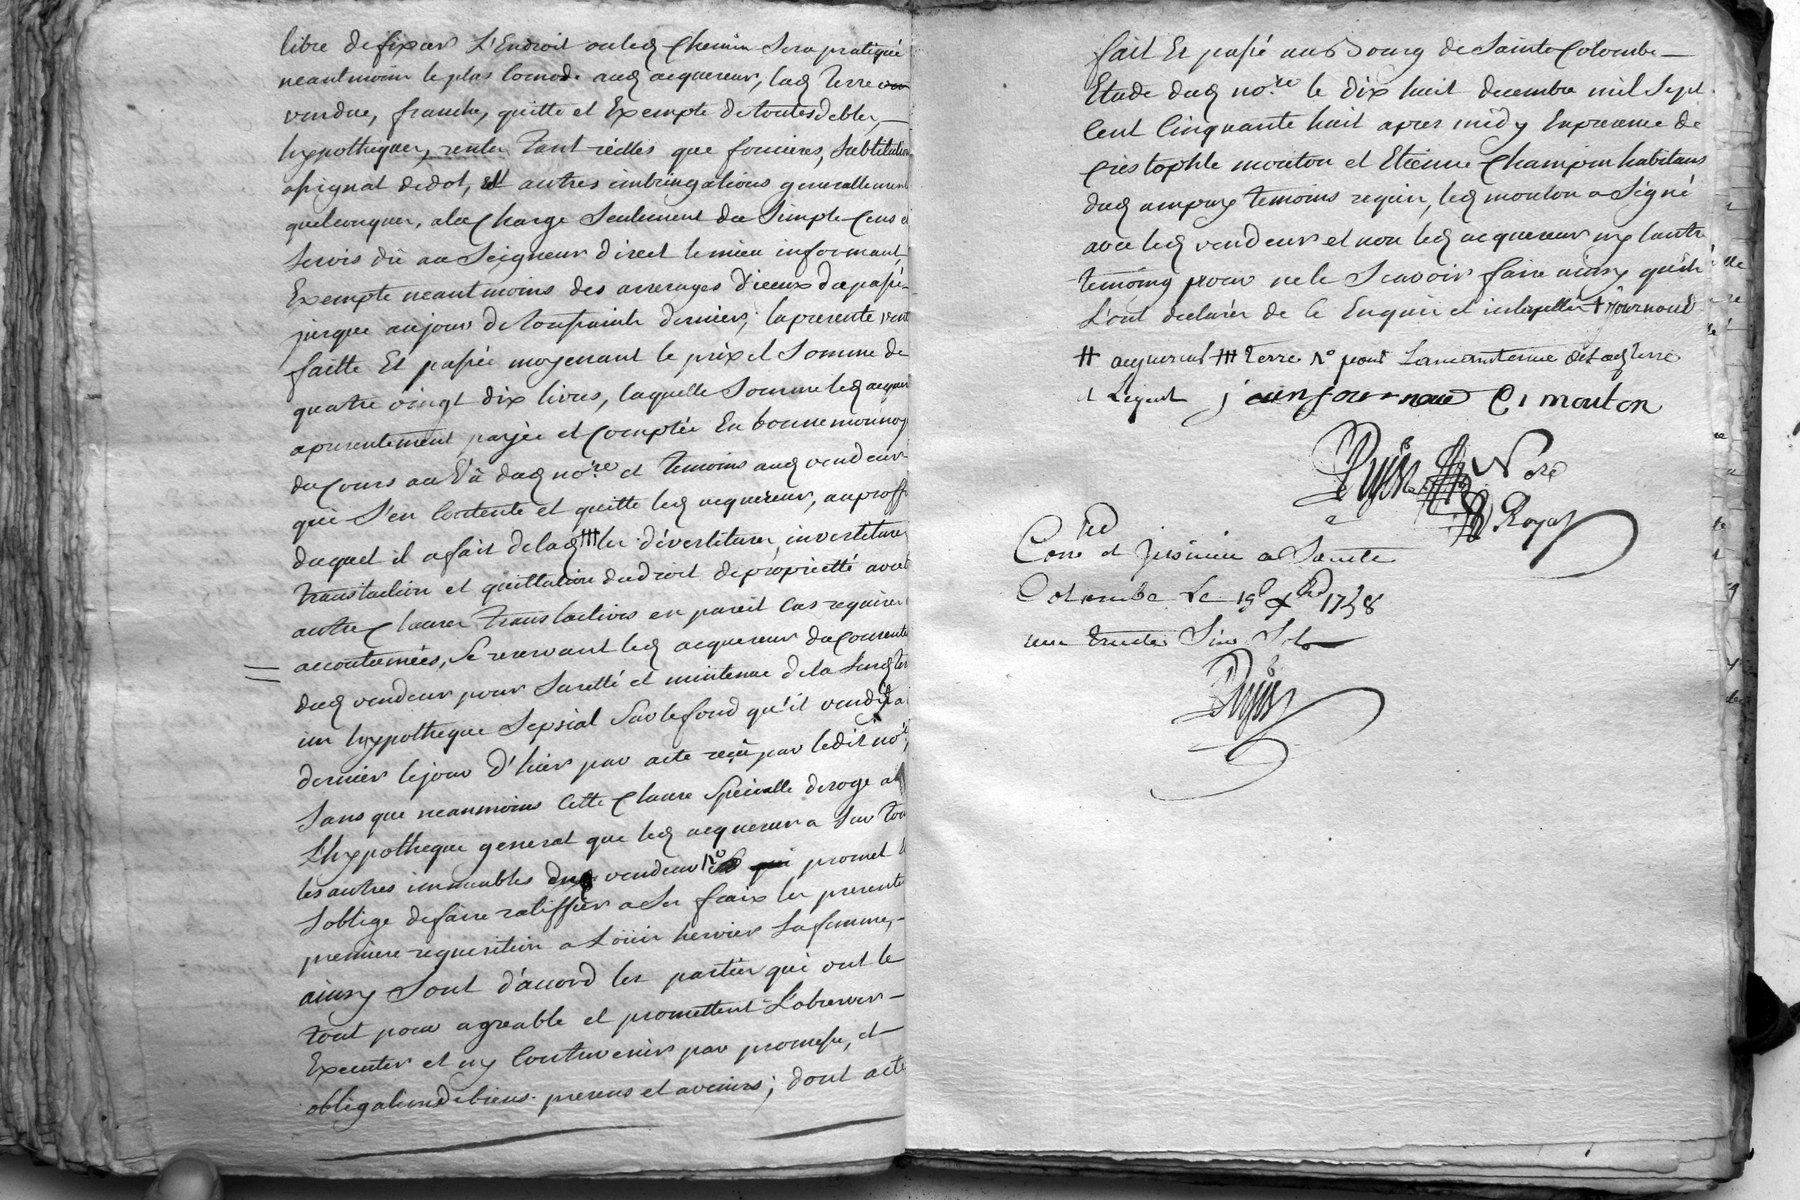 libre de fixer L'Endroit ou led chemin Sera pratiqué
neantmoins le plus comode aud acquereur, lad terre
vendue, franche, quitte et Exempte de toutes debtes,
hypotheques, rentes tant réelles que foncieres, Substitution
assignat de dot, et autres imbringations generallement
quelconques, a la Charge Seulement du Simple Cens et
Servis dû au Seigneur direct le mieu informant,
Exempte neantmoins des arrerages d'iceux du passé
jusques aujour de toussaints dernier; la presente vente
faitte Et passée moyenant le prix et Somme de
quatre vingt dix livres, laquelle Somme led acquereur
a presentement payée et Comptée En bonne monnoye
du Cours au Vû dud nore et temoins aud vendeur
qui S'en Contente et quitte led acquereur, au proffit
duquel il a fait de lad ╫╫ les dévestitures, investitures
translaction et quittation du droit de proprietté avec
autres Clauses translatives en pareil Cas requises
accoutumées, Se reservant led acquereur du Consente
dud vendeur pour Suretté et maintenue de la Susd terre
un hypotheque Sepsial Sur le fond qu'il vendit a
dernier le jour d'hier par acte reçu par ledit nore,
Sans que neanmoins Cette Clause Specialle deroge a
L'hypotheque general que led acquereur a Sur tous
les autres immeubles dud vendeur promet
S'oblige de faire ratiffier a Ses fraix les presentes
premiere requisition a Loüise hervier Sa femme,
ainsy Sont d'accord les parties qui ont le
tout pour agreable et promettent L'observer
Executer et ny Contrevenir par promesse, et
obligations de biens presens et avenirs; dont acte
fait Et passé au Bourg de Sainte Colombe
Etude dud nore le dix huit decembre mil Sept
Cent Cinquante huit apres midy En presence de
Cristophle mouton et Etienne Champin habitans
dud temoins requis, led mouton a Signé
avec led vendeur et non led acquereur ny lautre
temoing pour ne le Scavoir faire ainsy qu'ils
L'ont declarés de Ce Enquis et interpellés
╫ acquereur ╫╫ terre
C, mouton
Dujas Nore
Royal
Conlé et Insinué a Sainte
Colombe Le 19e Xbre 1758
reçu trente Six Sols
Dujas